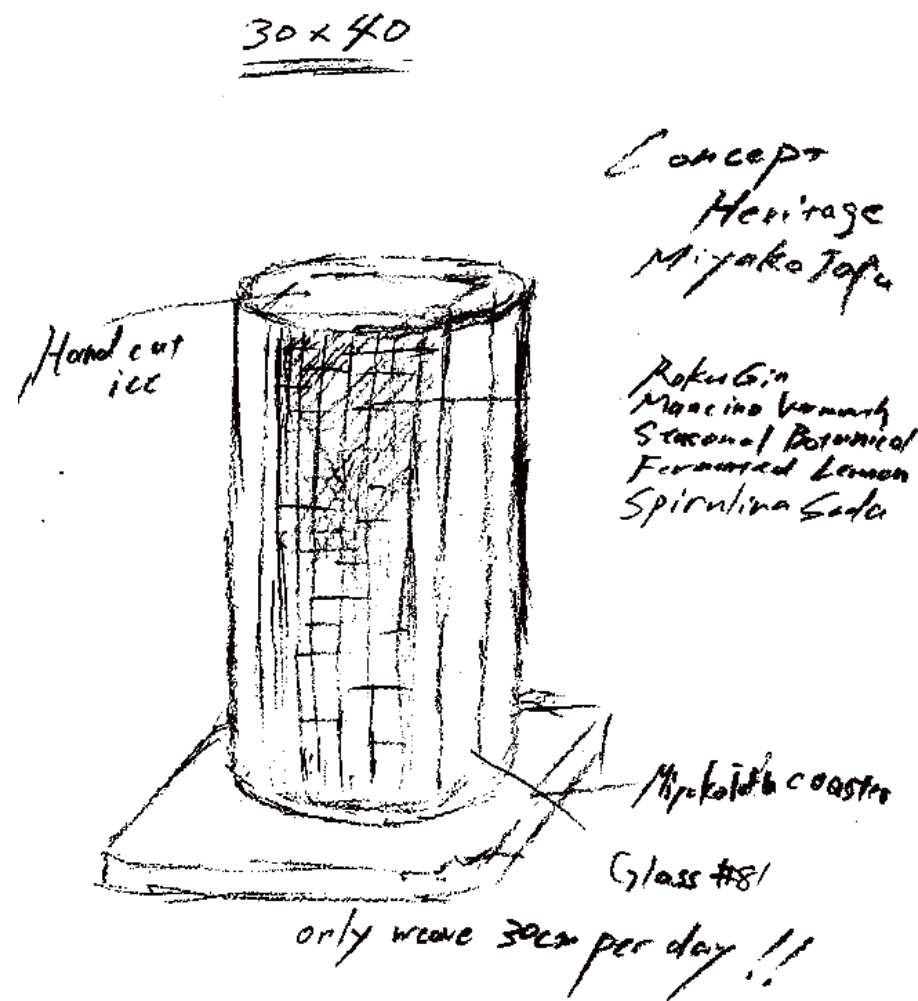 30 x 40
Concept
Heritage
Miyako Jofu
Hand cut
ice
Roku Gin
Mancino Vermouth
Seasonal Botanical
Fermented Lemon
Spirulina Soda
Miyako Jofu coaster
Glass #81
only weave 30cm per day !!